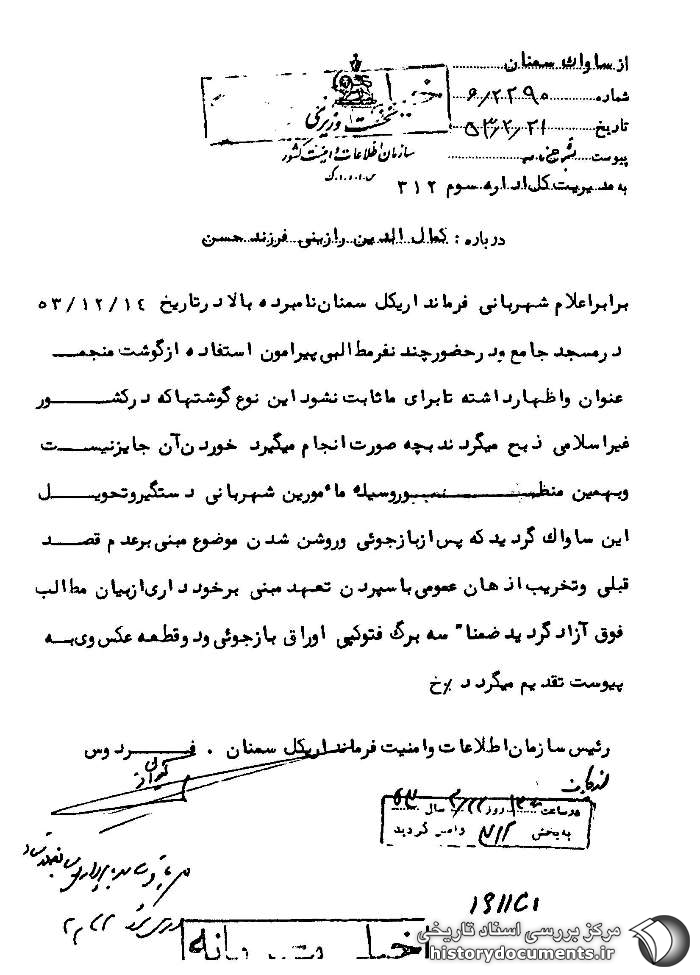 از ساواك سمنان
شماره ۶/۲۲۹۰
تاریخ ۵۳/۲/۲۱
پیوست
نخست وزیری
سازمان اطلاعات و امنیت کشور
س.ا.و.ا.ک
به مدیریت کل اداره سوم ۳۱۲
درباره : کمال الدین رازینی فرزند حسن
برابر اعلام شهربانی فرمانداریکل سمنان نامبرده بالا در تاریخ ۵۳/۱۲/۱۴
در مسجد جامع و در حضور چند نفر مطالبی پیرامون استفاده از گوشت منجمد
عنوان و اظهار داشته تا برای ما ثابت نشود این نوع گوشتها که در کشور
غیر اسلامی ذبح میگردند بچه صورت انجام میگیرد خوردن آن جایز نیست
و بهمین منظور بوسیله مأمورین شهربانی دستگیر و تحویل
این ساواك گردید که پس از بازجوئی و روشن شدن موضوع مبنی بر عدم قصد
قبلی و تخریب اذهان عمومی با سپردن تعهد مبنی بر خودداری از بیان مطالب
فوق آزاد گردید ضمنا" سه برگ فتوکپی اوراق بازجوئی و دو قطعه عکس وی به
پیوست تقدیم میگردد خ
رئیس سازمان اطلاعات و امنیت فرمانداریکل سمنان . فردوس
در ساعت روز سال
به بخش ۳۱۲ وارد گردید
مرکز بررسی اسناد تاریخی
historydocuments.ir